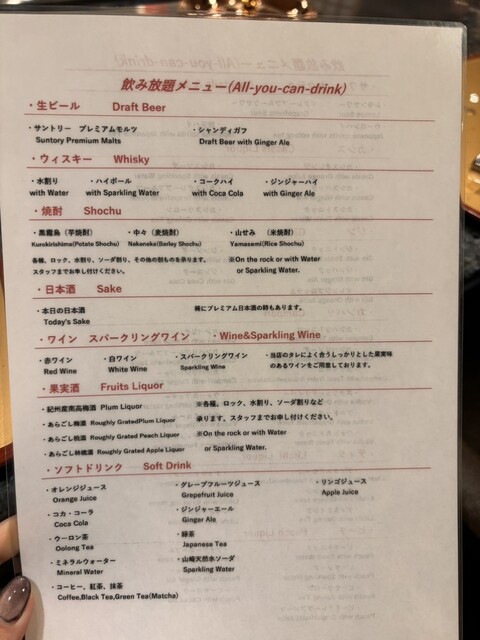 飲み放題メニュー(All-you-can-drink)
・生ビール Draft Beer
・サントリー プレミアムモルツ ・シャンディガフ
Suntory Premium Malts Draft Beer with Ginger Ale
・ウィスキー Whisky
・水割り ・ハイボール ・コークハイ ・ジンジャーハイ
with Water with Sparkling Water with Coca Cola with Ginger Ale
・焼酎 Shochu
・黒霧島（芋焼酎） ・中々（麦焼酎） ・山せみ （米焼酎）
Kurokirishima(Potate Shochu) Nakanaka(Barley Shochu) Yamasemi(Rice Shochu)
各種、ロック、水割り、ソーダ割り、その他の割ものを承ります。 ※On the rock or with Water
スタッフまでお申し付けください。 or Sparking Water.
・日本酒 Sake
・本日の日本酒 稀にプレミアム日本酒の時もあります。
Today's Sake
・ワイン スパークリングワイン ・Wine&Sparkling Wine
・赤ワイン ・白ワイン ・スパークリングワイン ・当店のタレによく合うしっかりとした果実味
Red Wine White Wine Sparkling Wine のあるワインをご用意しております。
・果実酒 Fruits Liquor
・紀州産南高梅酒 Plum Liquor ※各種、ロック、水割り、ソーダ割りなど
・あらごし梅酒 Roughly GratedPlum Liquor 承ります、スタッフまでお申し付けください。
・あらごし桃酒 Roughly Grated Peach Liquor ※On the rock or with Water
・あらごし林檎酒 Roughly Grated Apple Liquor or Sparkling Water.
・ソフトドリンク Soft Drink
・オレンジジュース ・グレープフルーツジュース ・リンゴジュース
Orange Juice Grepefruit Juice Apple Juice
・コカ・コーラ ・ジンジャーエール
Coca Cola Ginger Ale
・ウーロン茶 ・緑茶
Oolong Tea Japanese Tea
・ミネラルウォーター ・山崎天然水ソーダ
Mineral Water Sparkling Water
・コーヒー、紅茶、抹茶
Coffee,Black Tea,Green Tea(Matcha)